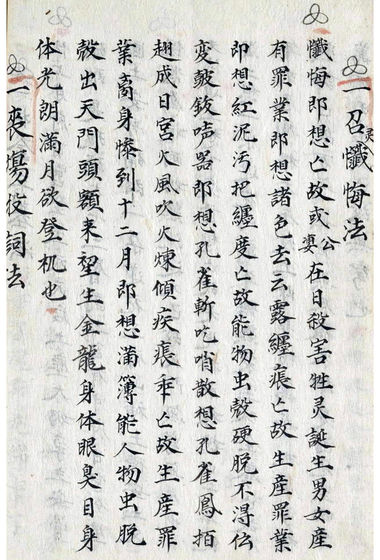 一召灵懺悔法
懺悔即想亡故或公婆在日殺害牲灵誕生男女産
有罪業即想諸色去云露纏痕亡故生産罪業
即想紅泥污把纏度亡故能物虫殻硬脱不淂伝
変皷鈸哊器即想孔雀斬吃哨散想孔雀鳳拍
翅成日宮火風吹火煉傾疾痕乖亡故生産罪
業离身惨列十二月即想满簿能人物虫脱
殻出天門頭額来望生金龍身体眼臭目身
体光朗满月欲登机也
一喪傷役詞法